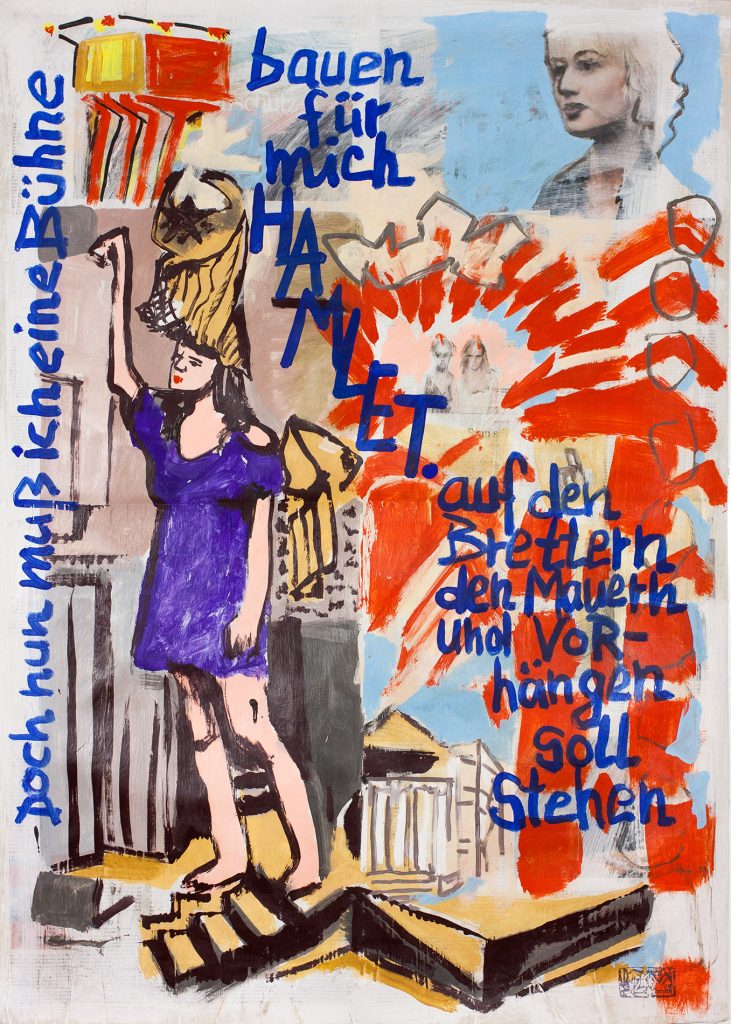 doch nun muß ich eine Bühne
bauen
für
mich
HAMLET.
auf den
Brettern
den Mauern
und VoR-
hängen
soll
stehen